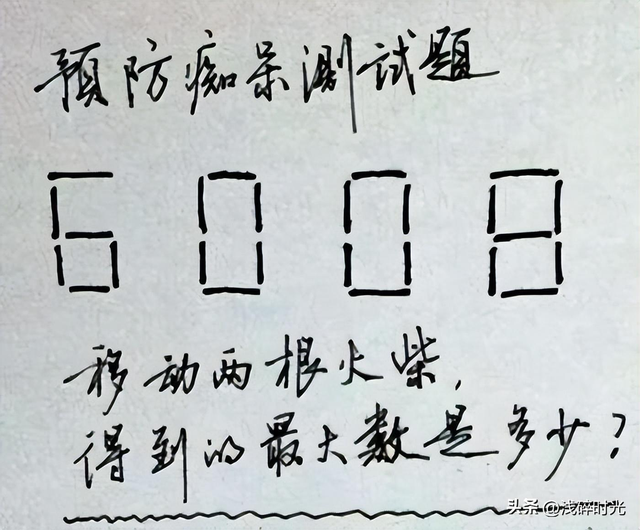 预防痴呆测试题
6008
移动两根火柴,
得到的最大数是多少?
头条 @浅碎时光